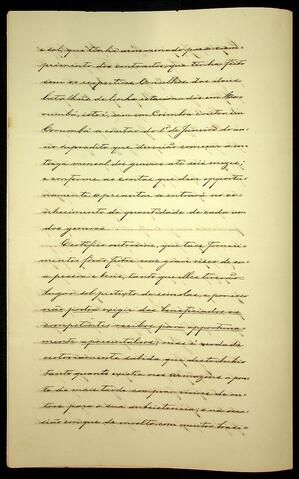 e sal, que tinhi armazenado para o cum-
primento dos contractos, que tenha feito
com os respectivos Conselhos dos dous
batalhões de linha estacionados em Co-
rumbá, isto é, um em Coimbra e outro em
Corumbá a contar do 1º de Janeiro do an-
no supradito que deverião começar a en-
trega mensal dos generos até seis mezes;
e conforme as contas que deve opportu-
namente apresentar e entrará no co-
nhecimento da quantidade de cada um
dos generos
Certifico outrosim, que taes forneci-
mentos forão feitos com gran risco de su-
a pessoa e bens, tanto que elles tiverão
lugar sob pretexto de esmolas, e por isso
não poderia exigir dos beneficiados os
competentes recibos para opportuna-
mente apresental-os; mas é verdade
notoriamente sabida que
tanto quanto existia nos armazens a pon-
to de mais tarde comprar viveres de ou-
tros para a sua subsistencia; e na oca-
sião em que de envolta com muitos brazi-